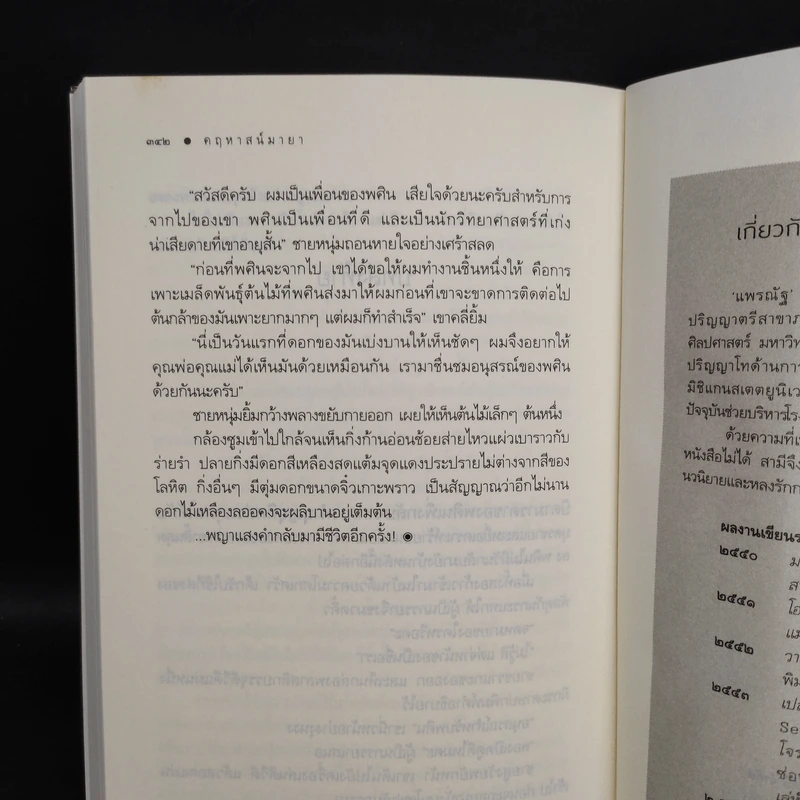 ๓๔๒ ● คฤหาสน์มายา
“สวัสดีครับ ผมเป็นเพื่อนของพศิน เสียใจด้วยนะครับสำหรับการ
จากไปของเขา พศินเป็นเพื่อนที่ดี และเป็นนักวิทยาศาสตร์ที่เก่ง
น่าเสียดายที่เขาอายุสั้น” ชายหนุ่มถอนหายใจอย่างเศร้าสลด
“ก่อนที่พศินจะจากไป เขาได้ขอให้ผมทำงานชิ้นหนึ่งให้ คือการ
เพาะเมล็ดพันธุ์ต้นไม้ที่พศินส่งมาให้ผมก่อนที่เขาจะขาดการติดต่อไป
ต้นกล้าของมันเพาะยากมากๆ แต่ผมก็ทำสำเร็จ” เขาคลี่ยิ้ม
“นี่เป็นวันแรกที่ดอกของมันเบ่งบานให้เห็นชัดๆ ผมจึงอยากให้
คุณพ่อคุณแม่ได้เห็นมันด้วยเหมือนกัน เรามาชื่นชมอนุสรณ์ของพศิน
ด้วยกันนะครับ”
ชายหนุ่มยิ้มกว้างพลางขยับกายออก เผยให้เห็นต้นไม้เล็กๆ ต้นหนึ่ง
กล้องซูมเข้าไปใกล้จนเห็นกิ่งก้านอ่อนช้อยส่ายไหวแผ่วเบาราวกับ
ร่ายรำ ปลายกิ่งมีดอกสีเหลืองสดแต้มจุดแดงประปรายไม่ต่างจากสีของ
โลหิต กิ่งอื่นๆ มีตุ่มดอกขนาดจิ๋วเกาะพราว เป็นสัญญาณว่าอีกไม่นาน
ดอกไม้เหลืองลออคงจะผลิบานอยู่เต็มต้น
...พญาแสงคำกลับมามีชีวิตอีกครั้ง! ◉
เกี่ยวกั
‘แพรณัฐ’
ปริญญาตรีสาขาภ
ศิลปศาสตร์ มหาวิท
ปริญญาโทด้านการ
มิชิแกนสเตตยูนิเว
ปัจจุบันช่วยบริหารโรง
ด้วยความที่เ
หนังสือไม่ได้ สามีจึง
นวนิยายและหลงรักก
ผลงานเขียนร
๒๕๕๐ ม
ส
๒๕๕๑ โอ
แม
๒๕๕๒ วา
พิม
๒๕๕๓ เปล
Se
โจร
ซ่อน